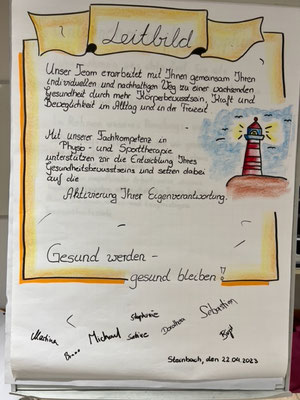 Leitbild
Unser Team erarbeitet mit Ihnen gemeinsam Ihren
individuellen und nachhaltigen Weg zu einer wachsenden
Gesundheit durch mehr Körperbewusstsein, Kraft und
Beweglichkeit im Alltag und in der Freizeit.
Mit unserer Fachkompetenz in
Physio- und Sporttherapie
unterstützen wir die Entwicklung Ihres
Gesundheitsbewusstseins und setzen dabei
auf die
Aktivierung Ihrer Eigenverantwortung.
Gesund werden -
gesund bleiben!
Stephanie
Sebastian
Martina
Michael
Dorothea
Steinbach, den 22.04.2023